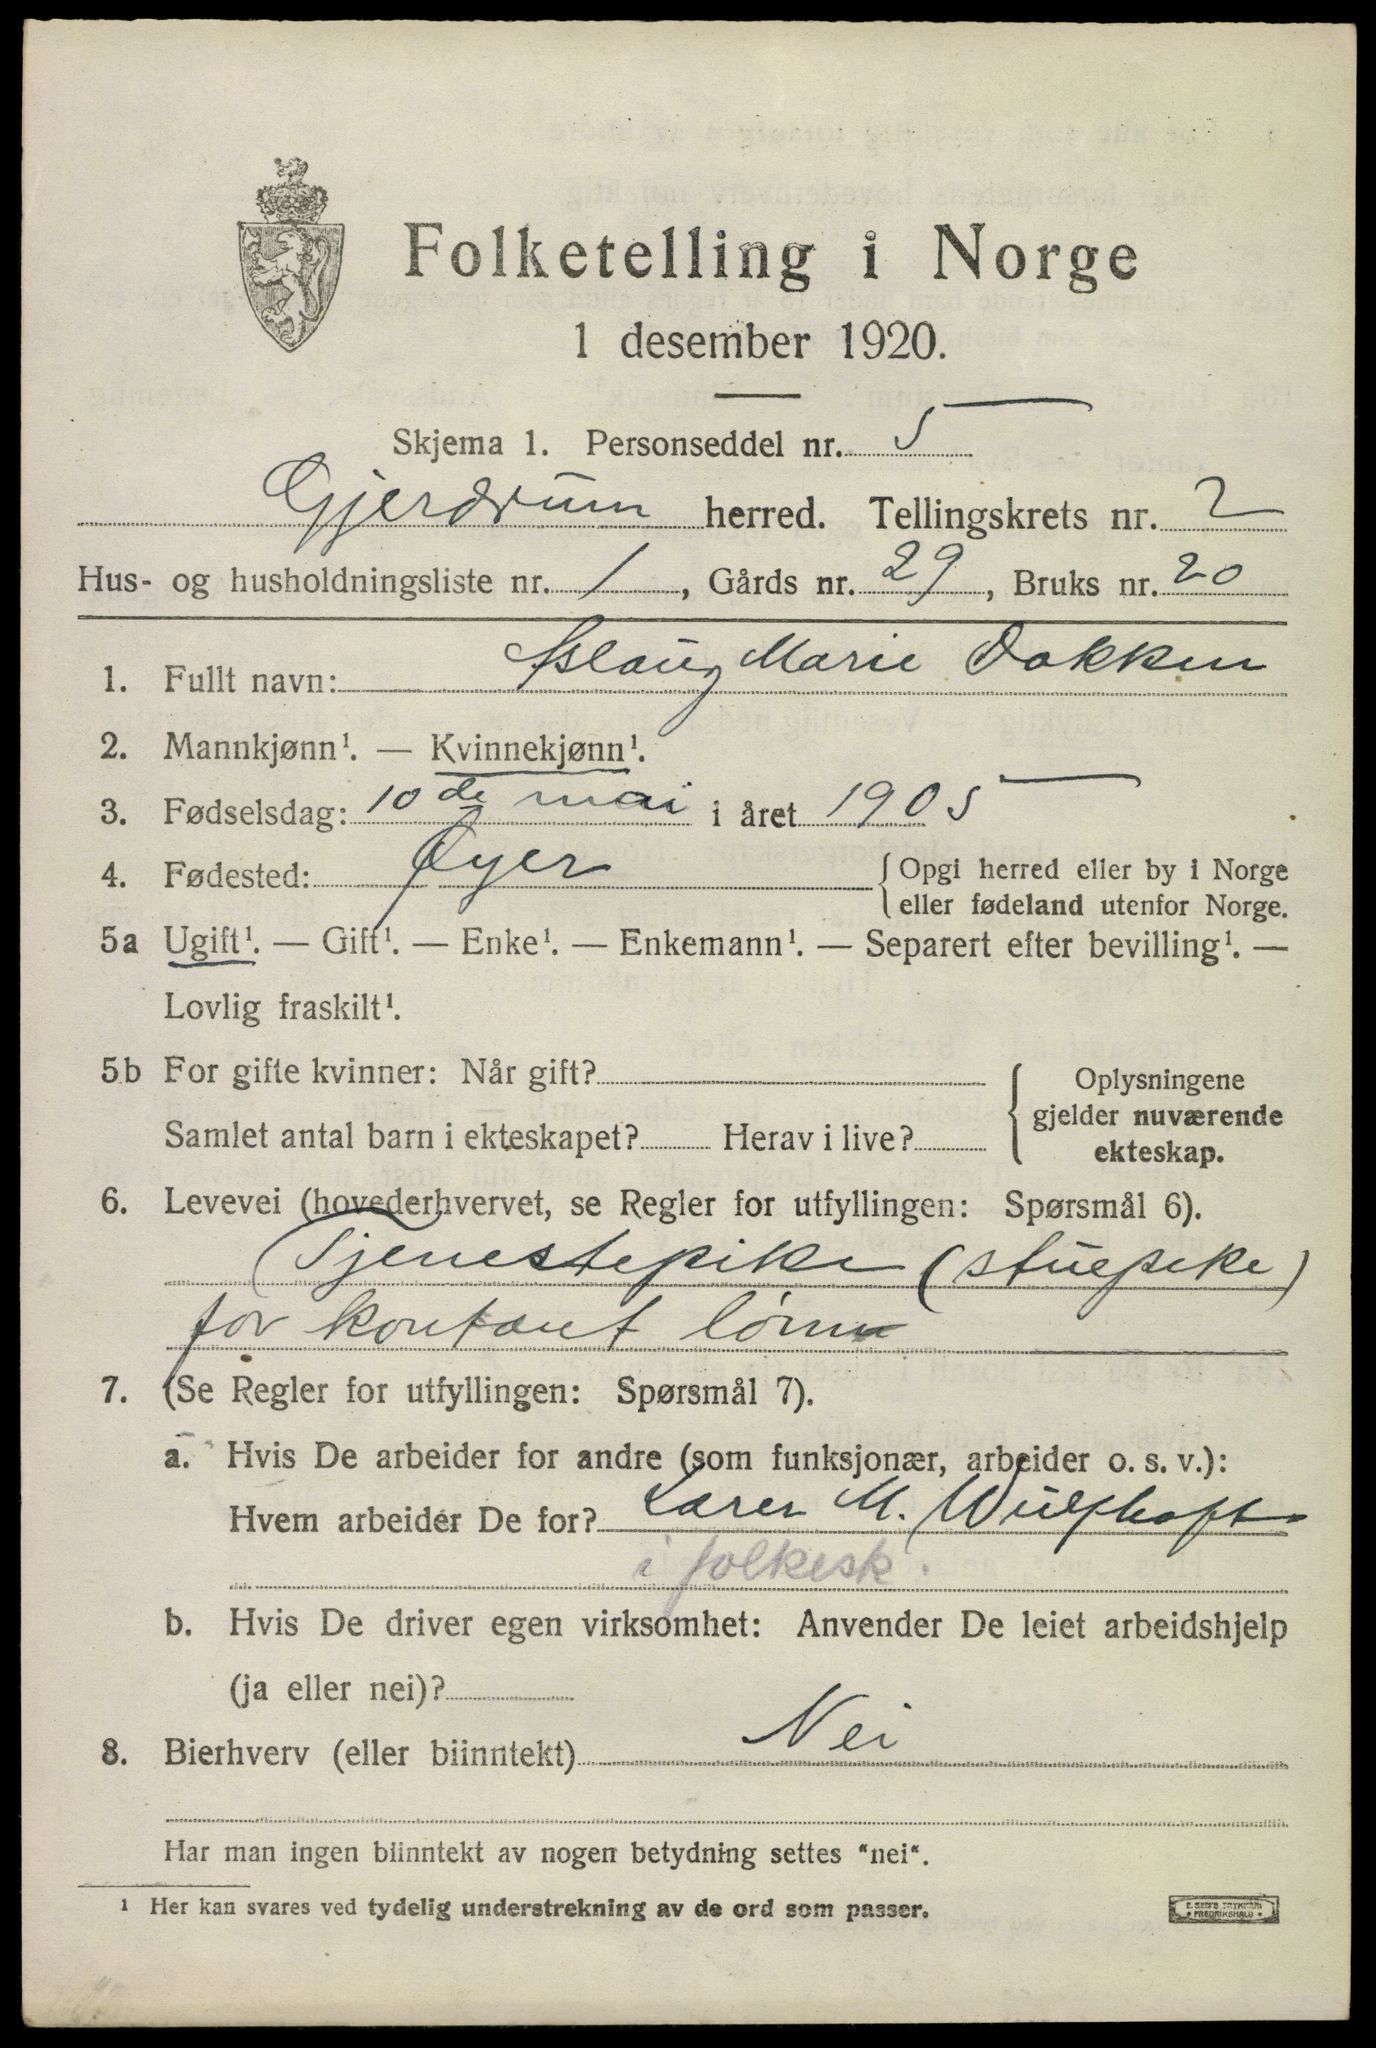 Folketelling i Norge
1 desember 1920.
Skjema 1. Personseddel nr. 5
Gjerdrum herred. Tellingskrets nr. 2
Hus- og husholdningsliste nr. 1, Gårds nr. 29, Bruks nr. 20
1. Fullt navn: Aslaug Marie Dokken
2. Mannkjønn¹. — Kvinnekjønn¹.
3. Fødselsdag: 10de mai i året 1905
4. Fødested: Øyer {Opgi herred eller by i Norge
eller fødeland utenfor Norge.
5a Ugift¹. — Gift¹. — Enke¹. — Enkemann¹. — Separert efter bevilling¹. —
Lovlig fraskilt¹.
5b For gifte kvinner: Når gift? { Oplysningene
gjelder nuværende
Samlet antal barn i ekteskapet? Herav i live?
ekteskap.
6. Levevei (hovederhvervet, se Regler for utfyllingen: Spørsmål 6).
Tjenestepike (stuepike)
for kontant lønn
7. (Se Regler for utfyllingen: Spørsmål 7).
a. Hvis De arbeider for andre (som funksjonær, arbeider o. s. v.):
Hvem arbeider De for? Lærer M. Wulfhoft
i folkesk.
b. Hvis De driver egen virksomhet: Anvender De leiet arbeidshjelp
(ja eller nei)?
8. Bierhverv (eller biinntekt) Nei
Har man ingen biinntekt av nogen betydning settes "nei".
¹ Her kan svares ved tydelig understrekning av de ord som passer.
FREDRIKSHALD